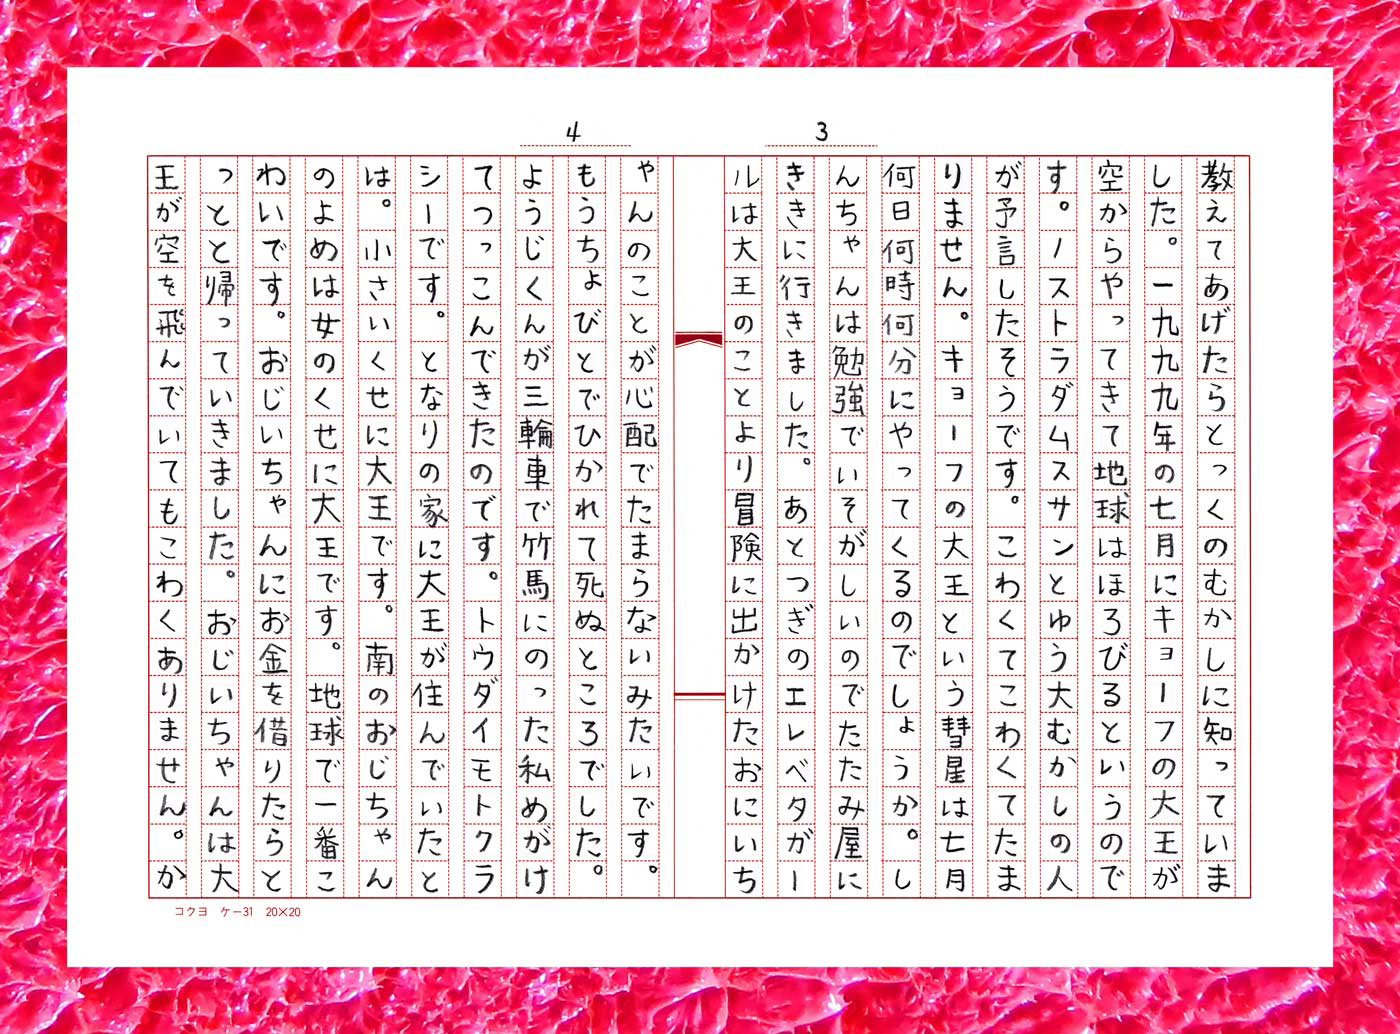 3
教えてあげたらとっくのむかしに知っていま
した。一九九九年の七月にキョーフの大王が
空からやってきて地球はほろびるというので
す。ノストラダムスサンとゆう大むかしの人
が予言したそうです。こわくてこわくてたま
りません。キョーフの大王という彗星は七月
何日何時何分にやってくるのでしょうか。し
んちゃんは勉強でいそがしいのでたたみ屋に
ききに行きました。あとつぎのエレベタガー
ルは大王のことより冒険に出かけたおにいち
4
ゃんのことが心配でたまらないみたいです。
もうちょびとでひかれて死ぬところでした。
ようじくんが三輪車で竹馬にのった私めがけ
てつっこんできたのです。トウダイモトクラ
シーです。となりの家に大王が住んでいたと
は。小さいくせに大王です。南のおじちゃん
のよめは女のくせに大王です。地球で一番こ
わいです。おじいちゃんにお金を借りたらと
っとと帰っていきました。おじいちゃんは大
王が空を飛んでいてもこわくありません。か
コクヨ ケー31 20×20